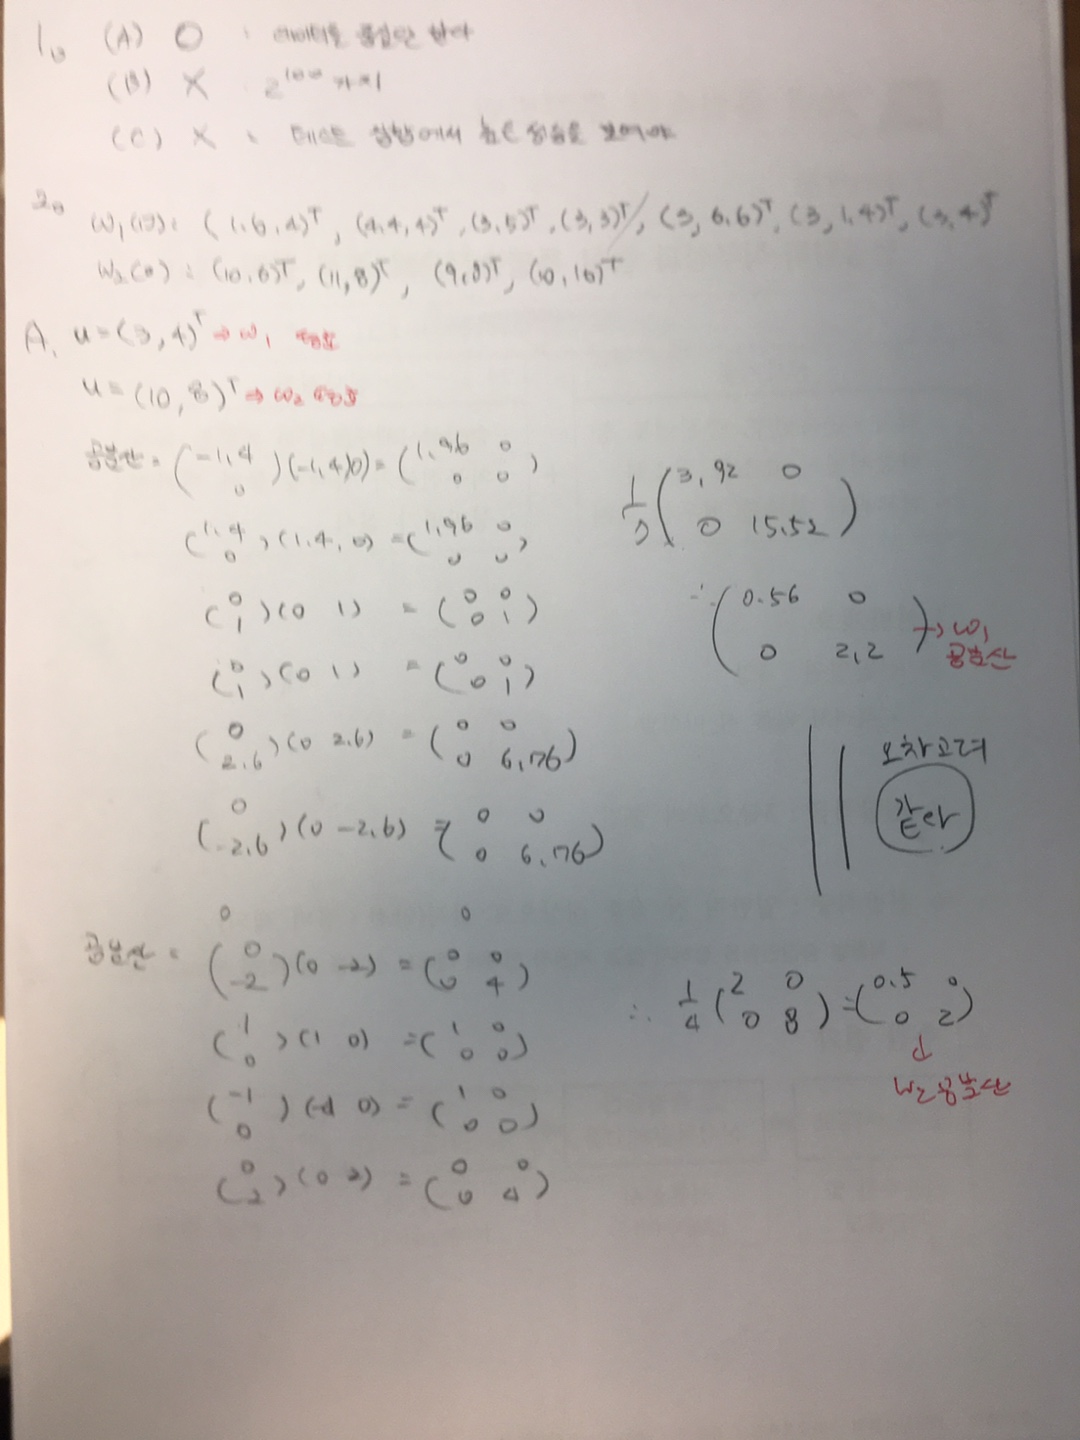 1. (A) O : 데이터를 훈련만 한다
(B) X : 2^100 가지
(C) X : 테스트 집합에서 높은 성능을 보여야
2.
W1(13): (1.6, 4)^T, (4.4, 4)^T, (3, 5)^T, (3, 3)^T, (3, 6.6)^T, (3, 1.4)^T, (3, 4)^T
W2(0): (10, 6)^T, (11, 8)^T, (9, 8)^T, (10, 10)^T
A. u = (3, 4)^T → ω1 평균
u = (10, 8)^T → ω2 평균
공분산 = (-1.4 0)(-1.4, 0) = (1.96 0 0 0)
(1.4 0)(1.4, 0) = (1.96 0 0 0)
(0 1)(0 1) = (0 0 0 1)
(0 -1)(0 1) = (0 0 0 1)
(0 2.6)(0 2.6) = (0 0 0 6.76)
(0 -2.6)(0 -2.6) = (0 0 0 6.76)
0 0
1/7 (3.92 0 0 15.52)
∴ (0.56 0 0 2.2) → ω1 공분산
오차고려
같다
공분산 = (0 -2)(0 -2) = (0 0 0 4)
(1 0)(1 0) = (1 0 0 0)
(-1 0)(-1 0) = (1 0 0 0)
(0 2)(0 2) = (0 0 0 4)
∴ 1/4 (2 0 0 8) = (0.5 0 0 2)
↓
W2 공분산